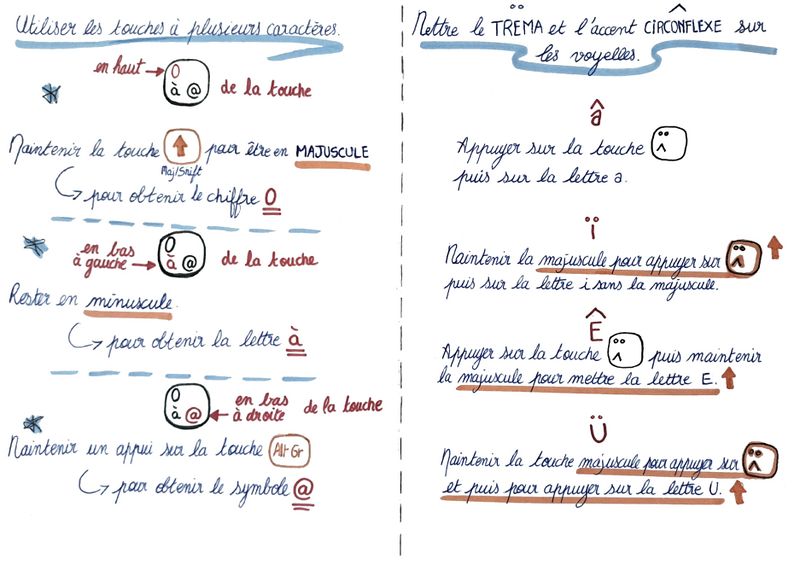 Utiliser les touches à plusieurs caractères.
en haut → 0
à @ de la touche
Maintenir la touche ↑ pour être en MAJUSCULE
Maj/Shift
pour obtenir le chiffre 0
0
en bas
à gauche → à @ de la touche
Rester en minuscule.
pour obtenir la lettre à
0
à @ ← en bas
à droite de la touche
Maintenir un appui sur la touche Alt Gr
pour obtenir le symbole @
Mettre le TRËMA et l'accent CIRCÔNFLEXE sur
les voyelles.
â
Appuyer sur la touche ¨ ^
puis sur la lettre a.
ï
Maintenir la majuscule pour appuyer sur ¨ ^ ↑
puis sur la lettre i sans la majuscule.
Ê
Appuyer sur la touche ¨ ^ puis maintenir
la majuscule pour mettre la lettre E. ↑
Ü
Maintenir la touche majuscule pour appuyer sur ¨ ^
et puis pour appuyer sur la lettre U. ↑